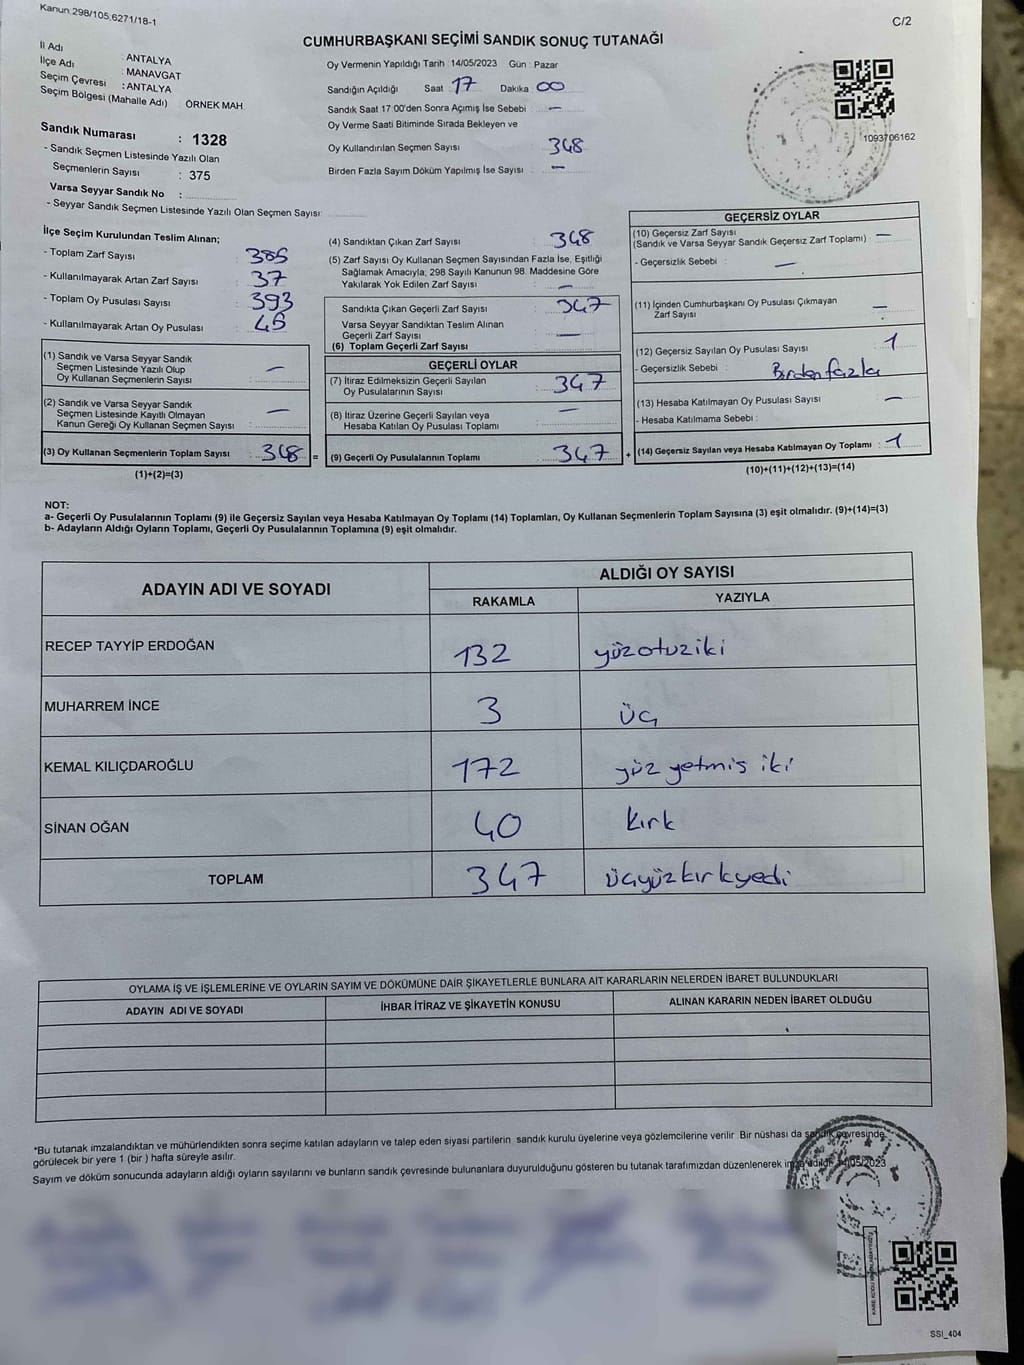 Kanun:298/105,6271/18-1
C/2
CUMHURBAŞKANI SEÇİMİ SANDIK SONUÇ TUTANAĞI
İl Adı : ANTALYA
İlçe Adı : MANAVGAT
Seçim Çevresi : ANTALYA
Seçim Bölgesi (Mahalle Adı) ÖRNEK MAH
Sandık Numarası : 1328
- Sandık Seçmen Listesinde Yazılı Olan
Seçmenlerin Sayısı : 375
Varsa Seyyar Sandık No :
- Seyyar Sandık Seçmen Listesinde Yazılı Olan Seçmen Sayısı:
Oy Vermenin Yapıldığı Tarih : 14/05/2023 Gün : Pazar
Sandığın Açıldığı Saat 17 Dakika 00
Sandık Saat 17:00'den Sonra Açımış İse Sebebi : —
Oy Verme Saati Bitiminde Sırada Bekleyen ve
Oy Kullandırılan Seçmen Sayısı : 348
Birden Fazla Sayım Döküm Yapılmış İse Sayısı : —
1093706162
İlçe Seçim Kurulundan Teslim Alınan;
- Toplam Zarf Sayısı : 385
- Kullanılmayarak Artan Zarf Sayısı : 37
- Toplam Oy Pusulası Sayısı : 393
- Kullanılmayarak Artan Oy Pusulası : 45
(1) Sandık ve Varsa Seyyar Sandık
Seçmen Listesinde Yazılı Olup
Oy Kullanan Seçmenlerin Sayısı : —
(2) Sandık ve Varsa Seyyar Sandık
Seçmen Listesinde Kayıtlı Olmayan
Kanun Gereği Oy Kullanan Seçmen Sayısı : —
(3) Oy Kullanan Seçmenlerin Toplam Sayısı : 348 =
(1)+(2)=(3)
(4) Sandıktan Çıkan Zarf Sayısı : 348
(5) Zarf Sayısı Oy Kullanan Seçmen Sayısından Fazla İse, Eşitliği
Sağlamak Amacıyla; 298 Sayılı Kanunun 98. Maddesine Göre
Yakılarak Yok Edilen Zarf Sayısı : —
Sandıkta Çıkan Geçerli Zarf Sayısı : 347
Varsa Seyyar Sandıktan Teslim Alınan
Geçerli Zarf Sayısı : —
(6) Toplam Geçerli Zarf Sayısı
GEÇERLİ OYLAR
(7) İtiraz Edilmeksizin Geçerli Sayılan
Oy Pusulalarının Sayısı : 347
(8) İtiraz Üzerine Geçerli Sayılan veya
Hesaba Katılan Oy Pusulası Toplamı : —
(9) Geçerli Oy Pusulalarının Toplamı : 347 +
GEÇERSİZ OYLAR
(10) Geçersiz Zarf Sayısı
(Sandık ve Varsa Seyyar Sandık Geçersiz Zarf Toplamı) : —
- Geçersizlik Sebebi : —
(11) İçinden Cumhurbaşkanı Oy Pusulası Çıkmayan
Zarf Sayısı : —
(12) Geçersiz Sayılan Oy Pusulası Sayısı : 1
- Geçersizlik Sebebi : Birden fazla
(13) Hesaba Katılmayan Oy Pusulası Sayısı : —
- Hesaba Katılmama Sebebi :
(14) Geçersiz Sayılan veya Hesaba Katılmayan Oy Toplamı : 1
(10)+(11)+(12)+(13)=(14)
NOT:
a- Geçerli Oy Pusulalarının Toplamı (9) ile Geçersiz Sayılan veya Hesaba Katılmayan Oy Toplamı (14) Toplamları, Oy Kullanan Seçmenlerin Toplam Sayısına (3) eşit olmalıdır. (9)+(14)=(3)
b- Adayların Aldığı Oyların Toplamı, Geçerli Oy Pusulalarının Toplamına (9) eşit olmalıdır.
ADAYIN ADI VE SOYADI ALDIĞI OY SAYISI
RAKAMLA YAZIYLA
RECEP TAYYİP ERDOĞAN 132 yüzotuziki
MUHARREM İNCE 3 üç
KEMAL KILIÇDAROĞLU 172 yüz yetmiş iki
SİNAN OĞAN 40 kırk
TOPLAM 347 üçyüzkırkyedi
OYLAMA İŞ VE İŞLEMLERİNE VE OYLARIN SAYIM VE DÖKÜMÜNE DAİR ŞİKAYETLERLE BUNLARA AİT KARARLARIN NELERDEN İBARET BULUNDUKLARI
ADAYIN ADI VE SOYADI İHBAR İTİRAZ VE ŞİKAYETİN KONUSU ALINAN KARARIN NEDEN İBARET OLDUĞU
*Bu tutanak imzalandıktan ve mühürlendikten sonra seçime katılan adayların ve talep eden siyasi partilerin sandık kurulu üyelerine veya gözlemcilerine verilir Bir nüshası da sandık çevresinde
görülecek bir yere 1 (bir ) hafta süreyle asılır.
Sayım ve döküm sonucunda adayların aldığı oyların sayılarını ve bunların sandık çevresinde bulunanlara duyurulduğunu gösteren bu tutanak tarafımızdan düzenlenerek imza edildi. 14/05/2023
SSI_404